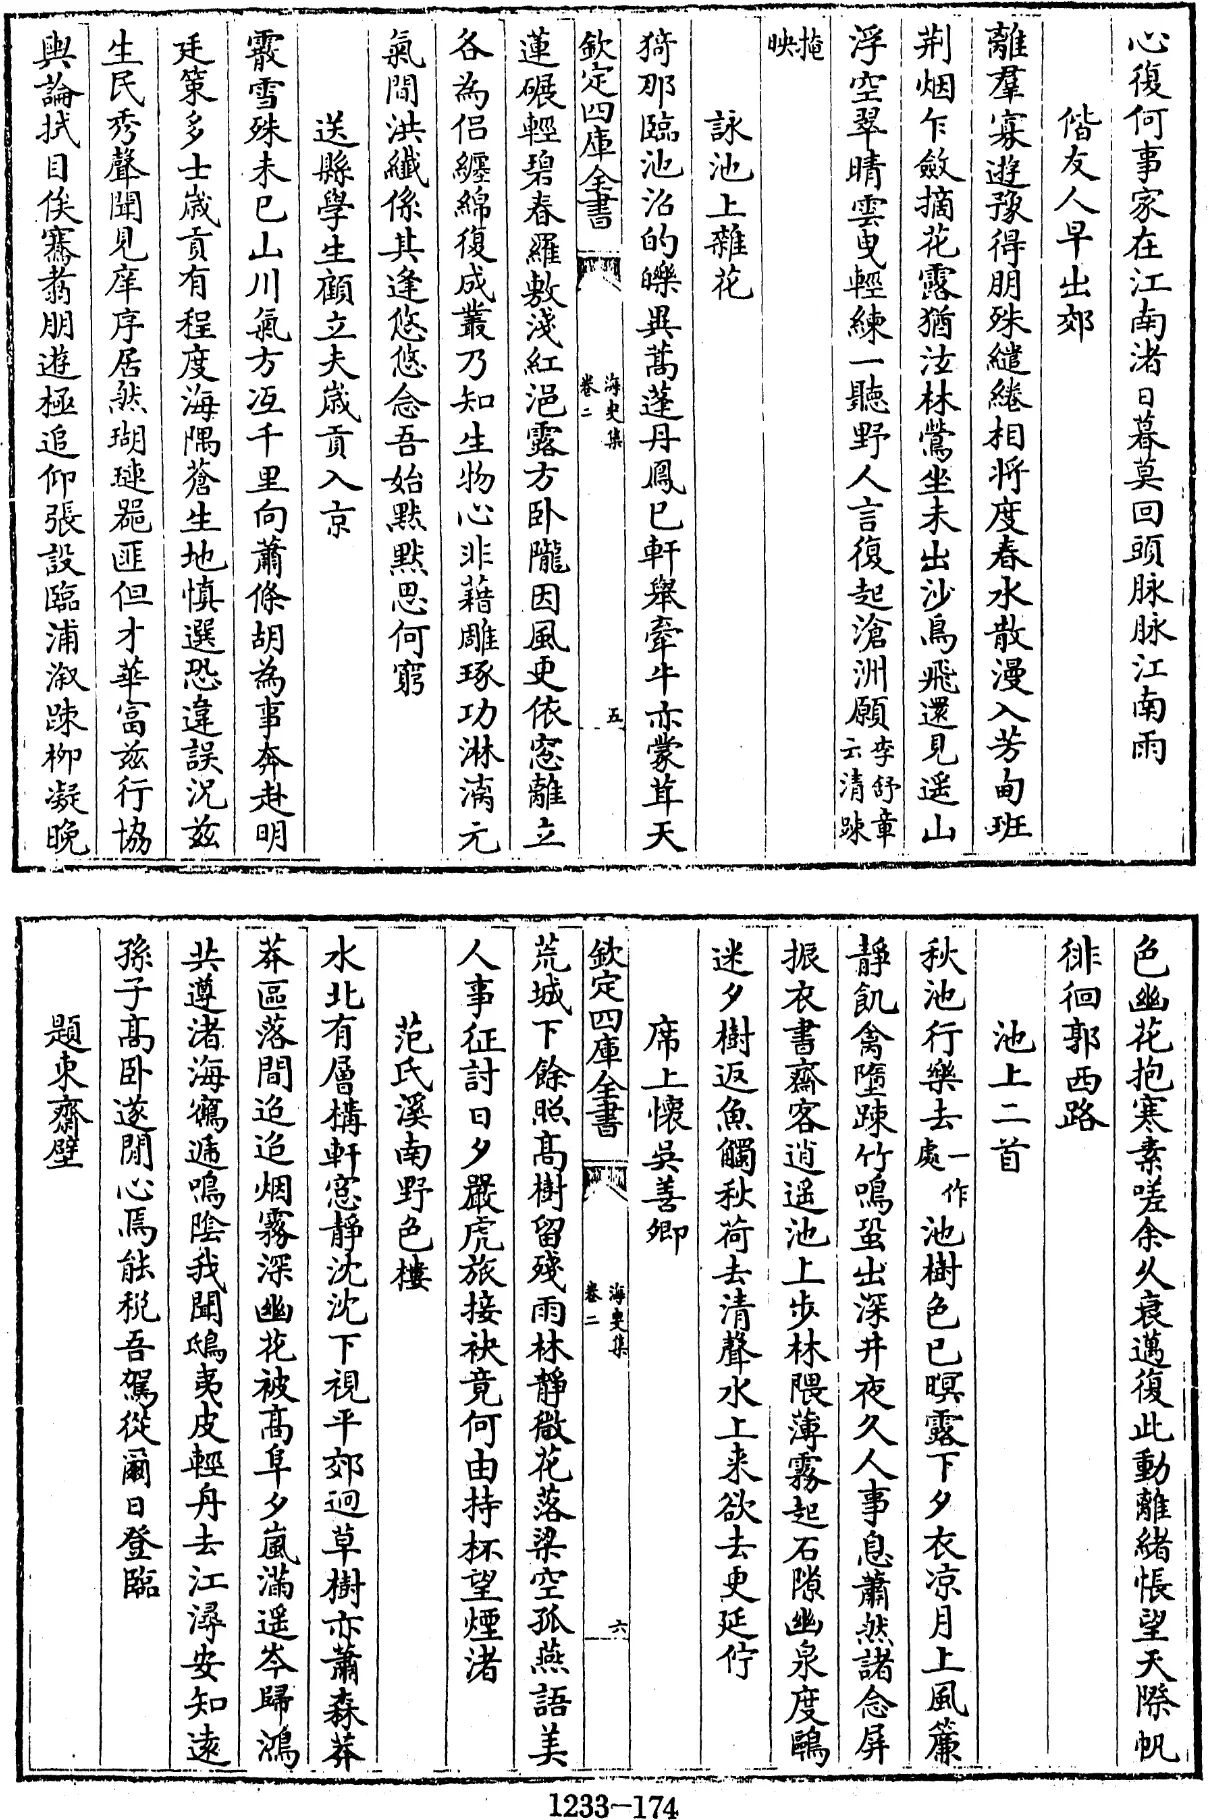 心復何事家在江南渚日暮莫回頭脉脉江南雨
偕友人早出郊
離羣寡遊豫得朋殊繾綣相將度春水散漫入芳甸班
荆烟乍斂摘花露猶泫林鶯坐未出沙鳥飛還見遥山
浮空翠晴雲曳輕練一聽野人言復起滄洲願李舒章云清疎
掩映
詠池上雜花
猗那臨池沼的皪異蒿蓬丹鳳已軒舉牽牛亦蒙茸天
欽定四庫全書
海叟集
卷二
五
蓮碾輕碧春羅敷淺紅浥露方卧隴因風更依窓離立
各為侣纏綿復成叢乃知生物心非藉雕琢功淋漓元
氣間洪纖係其逢悠悠念吾始黙黙思何窮
送縣學生顧立夫歲貢入京
霰雪殊未已山川氣方冱千里向蕭條胡為事奔赴明
廷策多士歲貢有程度海隅蒼生地慎選恐違誤況兹
生民秀聲聞見庠序居然瑚璉器匪但才華富兹行協
輿論拭目俟騫翥朋遊極追仰張設臨浦溆疎柳凝晚
色幽花抱寒素嗟余久衰邁復此動離緒悵望天際帆
徘徊郭西路
池上二首
秋池行樂去一作處池樹色已暝露下夕衣凉月上風簾
靜飢禽墮疎竹鳴蛩出深井夜久人事息蕭然諸念屏
振衣書齋客逍遥池上步林隈薄霧起石隙幽泉度鷗
迷夕樹返魚觸秋荷去清聲水上来欲去更延佇
席上懷吳善卿
欽定四庫全書
海叟集
卷二
六
荒城下餘照髙樹留殘雨林靜微花落梁空孤燕語美
人事征討日夕嚴虎旅接袂竟何由持杯望煙渚
范氏溪南野色樓
水北有層構軒窓靜沈沈下視平郊迥草樹亦蕭森莽
莽區落間迢迢烟霧深幽花被髙阜夕嵐滿遥岑歸鴻
共遵渚海鶴遞鳴陰我聞鴟夷皮輕舟去江潯安知遠
孫子髙卧遂閒心焉能税吾駕從爾日登臨
題東齋壁
1233-174